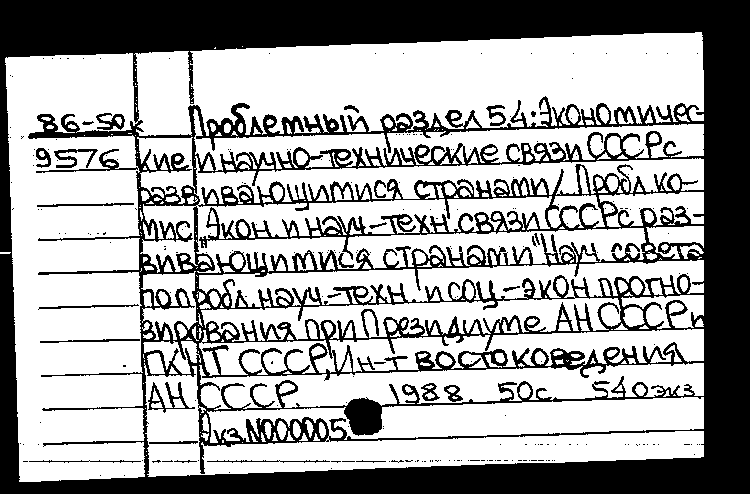 86-50к Проблемный раздел 5.4: Экономичес-
9576 кие и научно-технические связи СССР с
развивающимися странами / Пробл. ко-
мис. "Экон. и науч.-техн. связи СССР с раз-
вивающимися странами" Науч. совета
по пробл. науч.-техн. и соц.-экон. прогно-
зирования при Президиуме АН СССР и
ГКНТ СССР, Ин-т востоковедения
АН СССР. 1988. 50с. 540экз.
Экз.N000005.